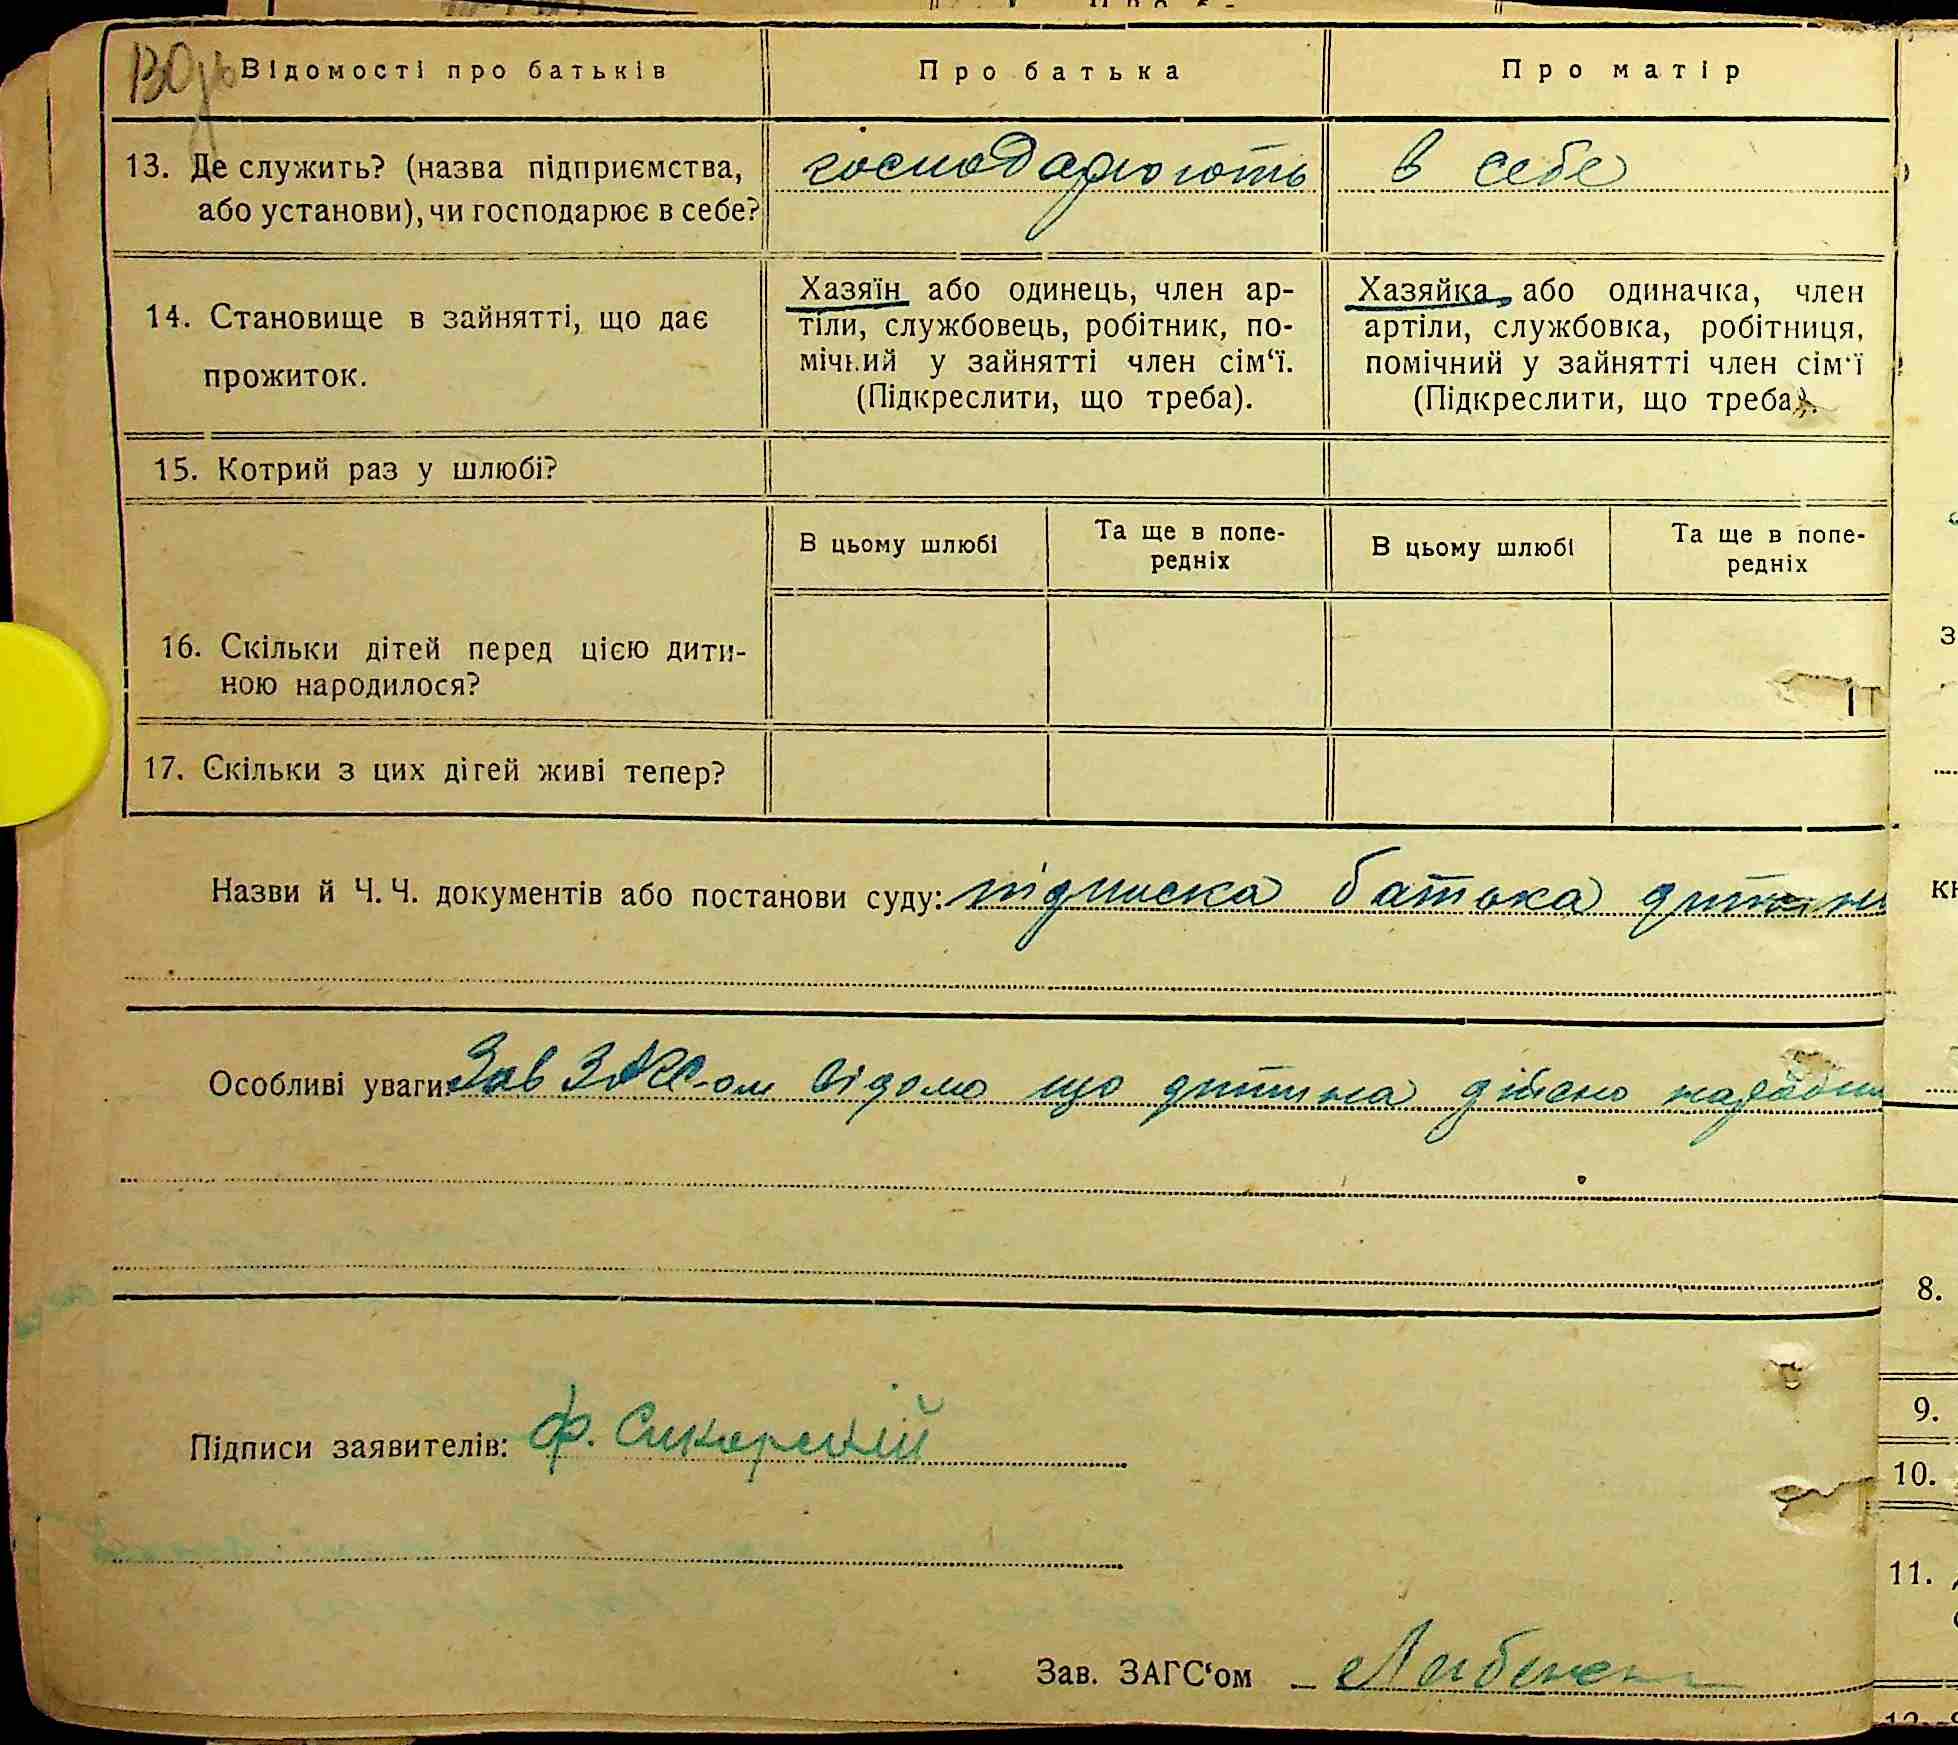 Відомості про батьків
Про батька
Про матір
13. Де служить? (назва підприємства,
або установи), чи господарює в себе?
господарюють
в себе
14. Становище в зайнятті, що дає
прожиток.
Хазяїн або одинець, член ар-
тіли, службовець, робітник, по-
мічний у зайнятті член сім‘ї.
(Підкреслити, що треба).
Хазяйка, або одиначка, член
артіли, службовка, робітниця,
помічний у зайнятті член сім‘ї
(Підкреслити, що треба).
15. Котрий раз у шлюбі?
В цьому шлюбі
Та ще в попе-
редніх
В цьому шлюбі
Та ще в попе-
редніх
16. Скільки дітей перед цією дити-
ною народилося?
17. Скільки з цих дітей живі тепер?
Назви й Ч. Ч. документів або постанови суду: підписка батька дитини
Особливі уваги: Зав ЗАГС-ом відомо що дитина дійсно
Підписи заявителів: Ф. Сикорский
Зав. ЗАГС‘ом
8.
9.
10.
11.